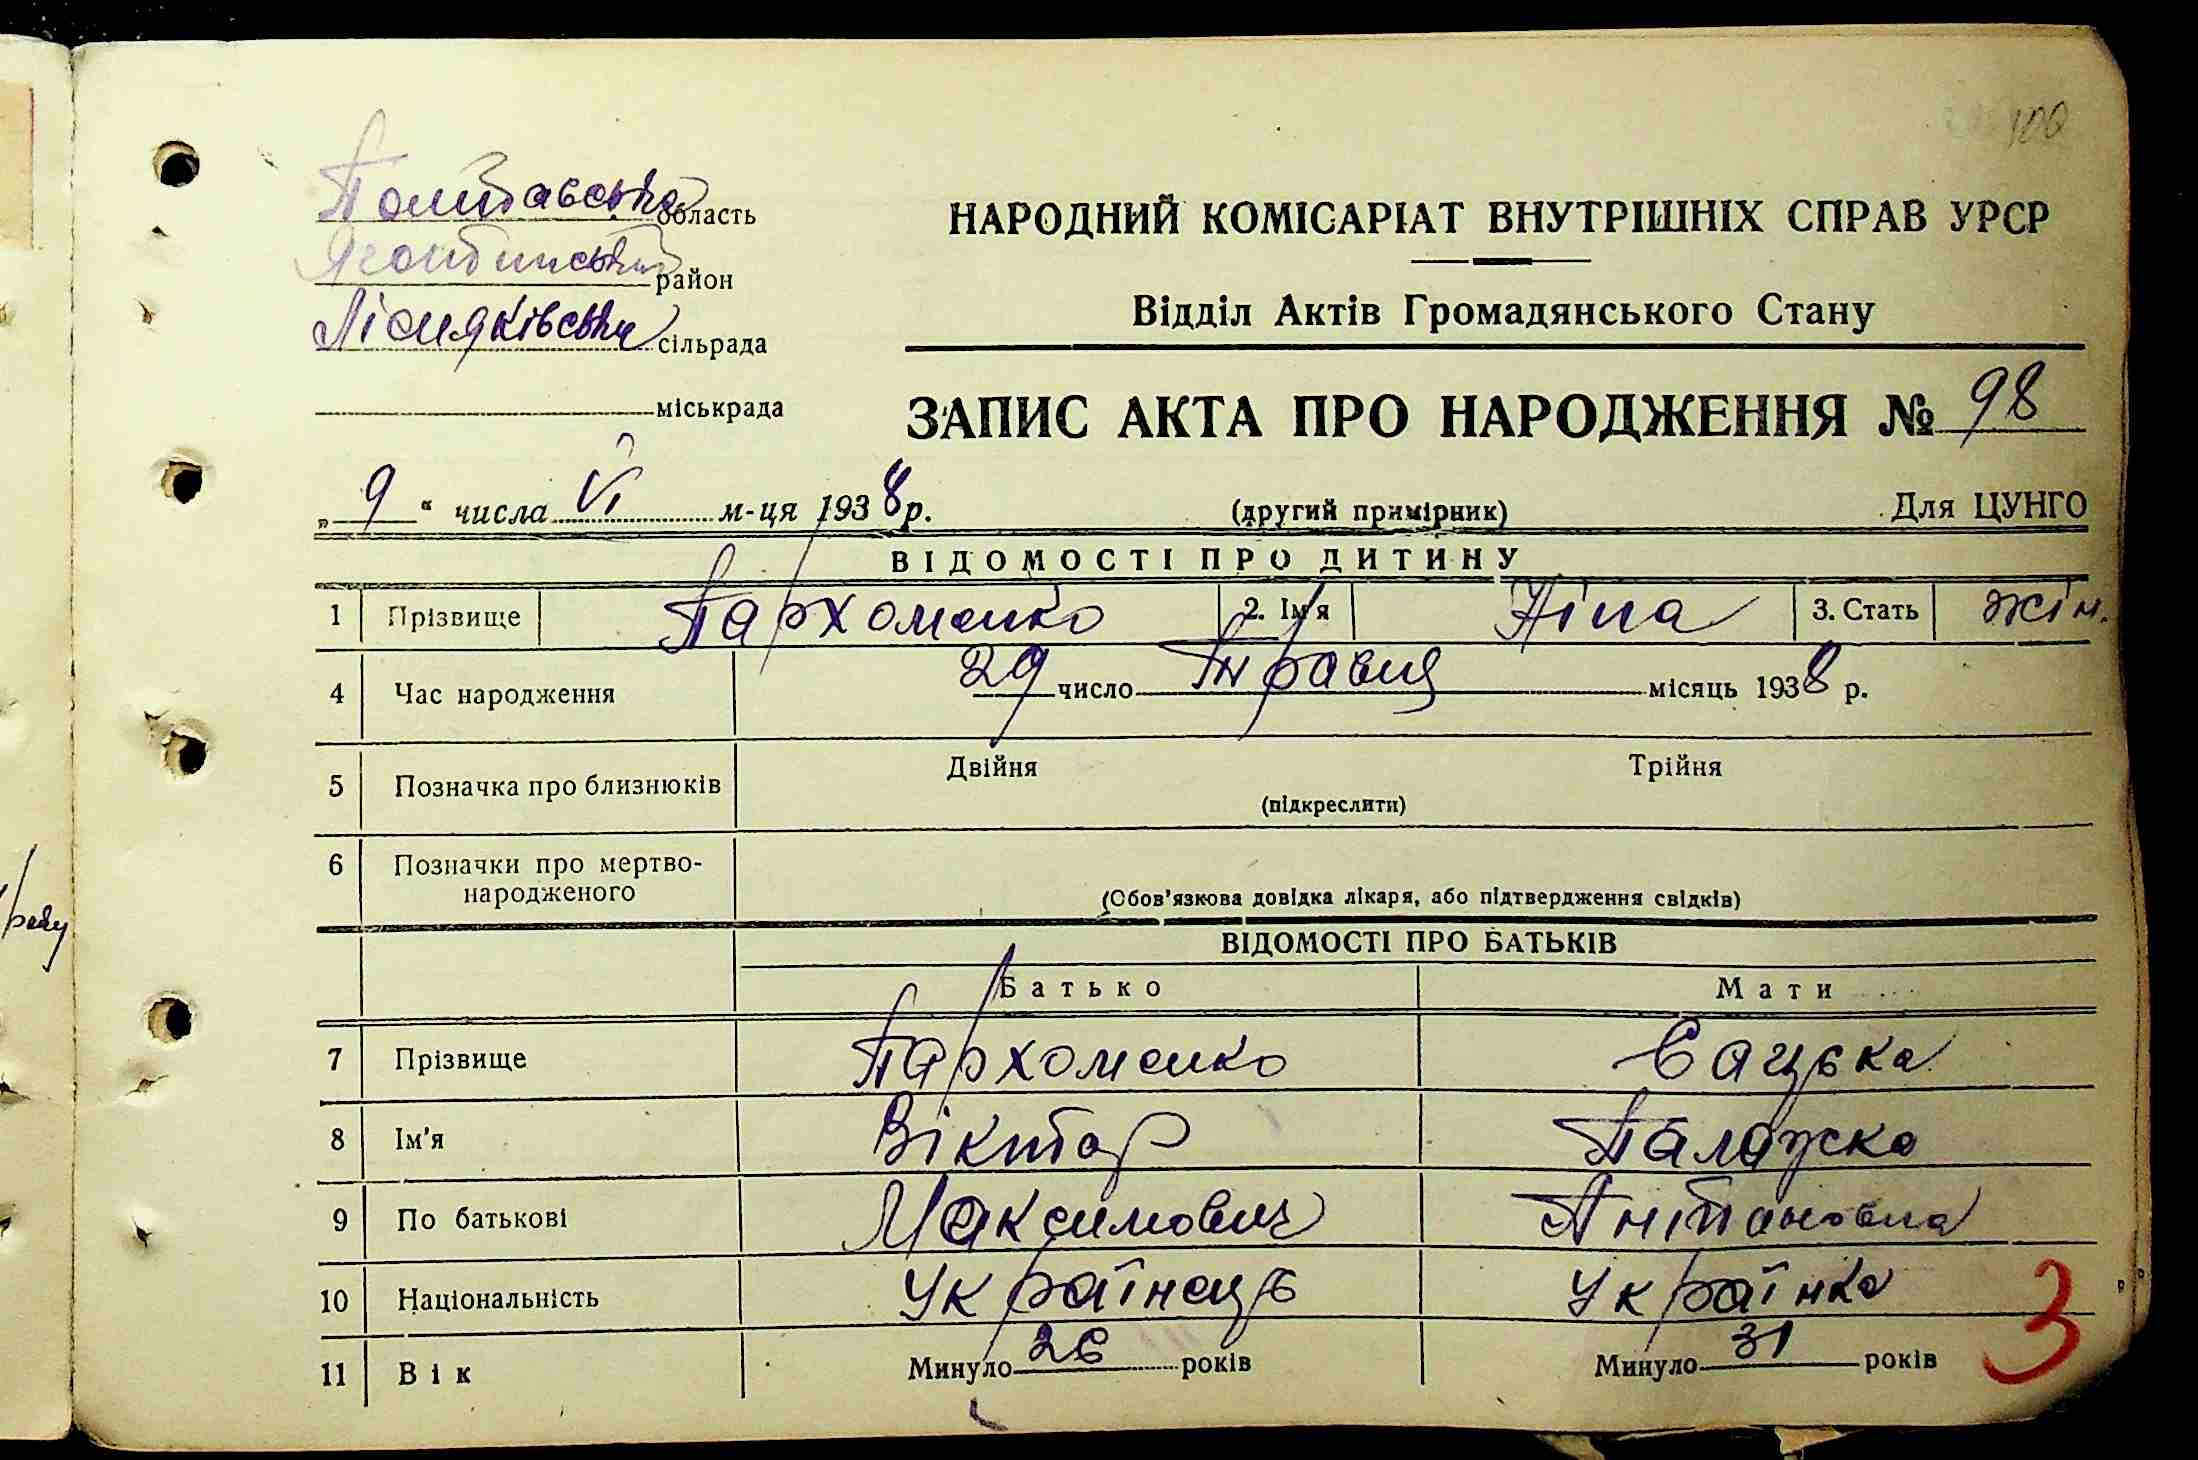 100
Полтавська область
Яготинський район
Лісняківська сільрада
міськрада
НАРОДНИЙ КОМІСАРІАТ ВНУТРІШНІХ СПРАВ УРСР
Відділ Актів Громадянського Стану
ЗАПИС АКТА ПРО НАРОДЖЕННЯ № 98
„9“ числа VI м-ця 1938 р. (другий примірник) Для ЦУНГО
ВІДОМОСТІ ПРО ДИТИНУ
1 Прізвище Пархоменко 2. Ім'я Ніна 3. Стать жін.
4 Час народження 29 число Травня місяць 1938 р.
5 Позначка про близнюків Двійня Трійня
(підкреслити)
6 Позначки про мертво-
народженого
(Обов'язкова довідка лікаря, або підтвердження свідків)
ВІДОМОСТІ ПРО БАТЬКІВ
Батько Мати
7 Прізвище Пархоменко Сацька
8 Ім'я Віктор Палажка
9 По батькові Максимович Антоновна
10 Національність Українець Українка
11 Вік Минуло 26 років Минуло 31 років
3